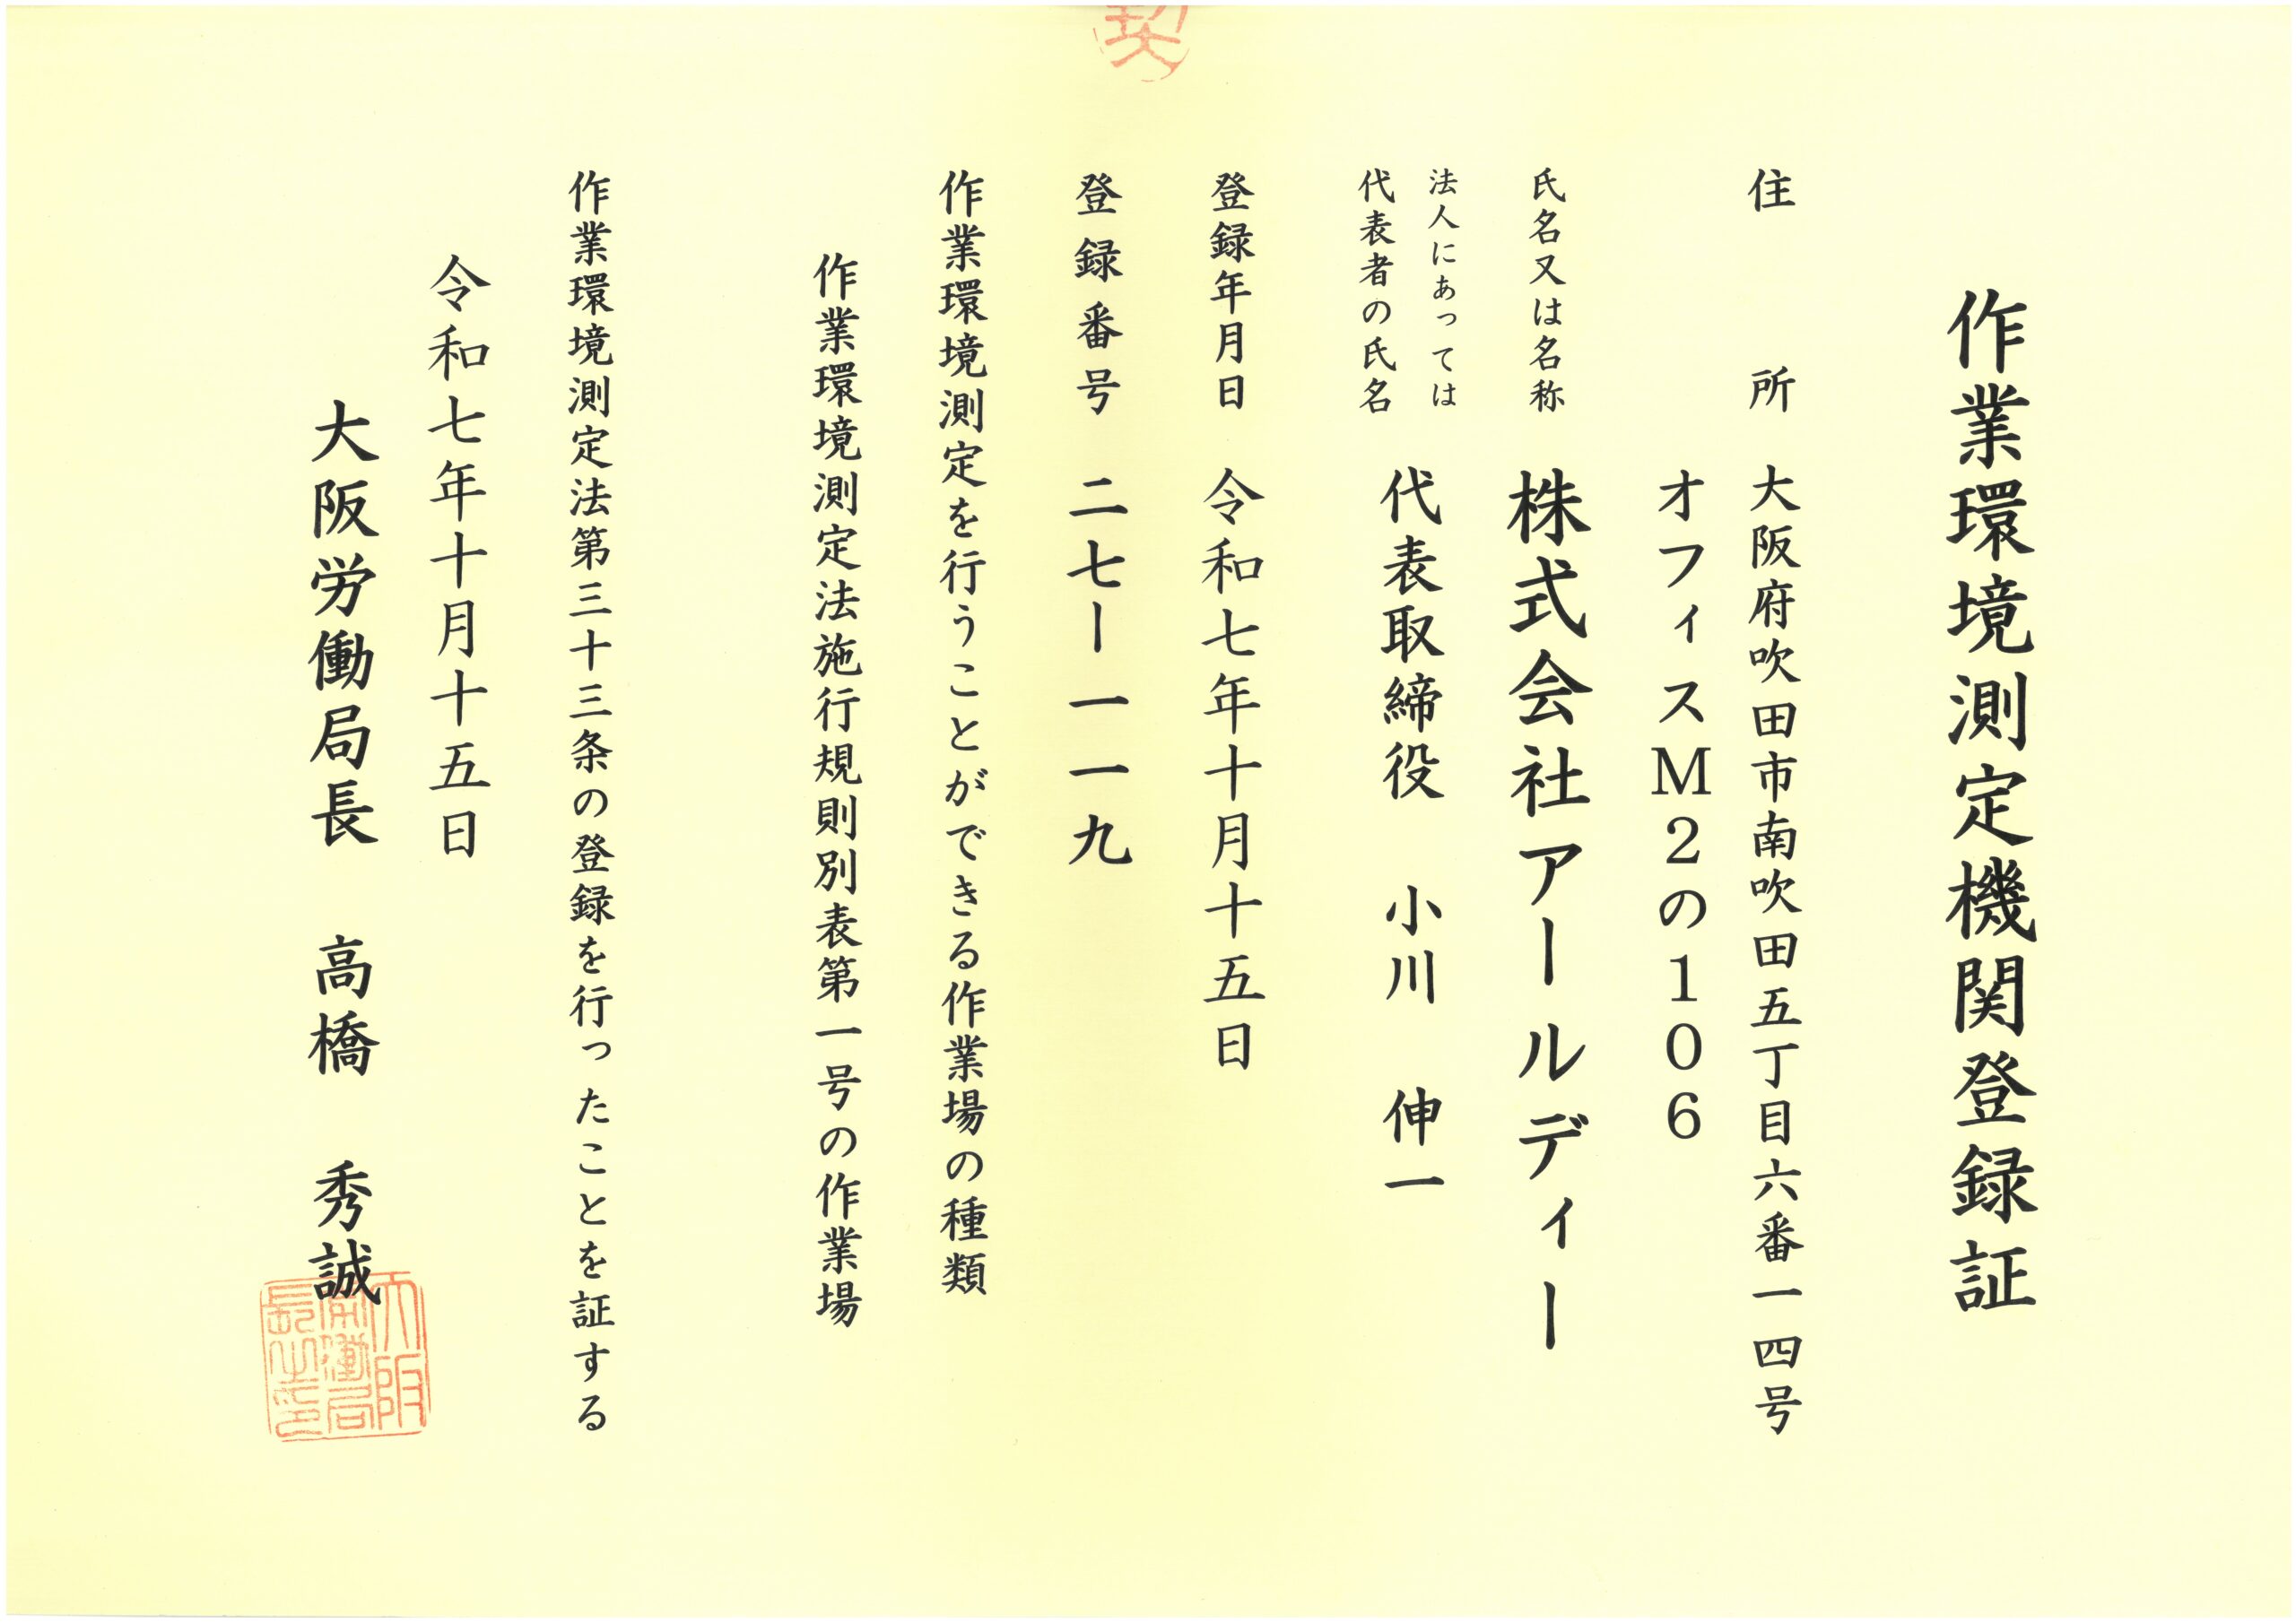 作業環境測定機関登録証
住所 大阪府吹田市南吹田五丁目六番一四号
オフィスM2の106
氏名又は名称 株式会社アールディー
法人にあっては
代表者の氏名 代表取締役 小川 伸一
登録年月日 令和七年十月十五日
登録番号 二七ー一一一九
作業環境測定を行うことができる作業場の種類
作業環境測定法施行規則別表第一号の作業場
作業環境測定法第三十三条の登録を行ったことを証する
令和七年十月十五日
大阪労働局長 高橋 秀誠
大阪
労働局
長之印
契